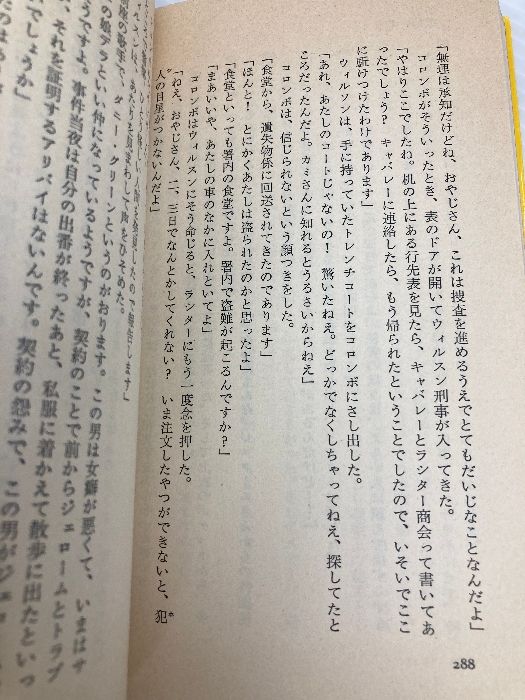 「無理は承知だけどね、おやじさん、これは捜査を進めるうえでとてもだいじなことなんだよ」
コロンボがそういったとき、表のドアが開いてウィルスン刑事が入ってきた。
「やはりここでしたね。机の上にある行先表を見たら、キャバレーとラシター商会って書いてあ
ったでしょう？　キャバレーに連絡したら、もう帰られたということでしたので、いそいでここ
に駈けつけたわけであります」
ウィルソンは、手に持っていたトレンチコートをコロンボにさし出した。
「あれ、あたしのコートじゃないの！　驚いたねえ。どっかでなくしちゃってねえ、探してたと
ころだったんだよ。カミさんに知れるとうるさいからねえ」
コロンボは、信じられないという顔つきをした。
「食堂から、遺失物係に回送されてきたのであります」
「ほんと！　とにかくあたしは盗られたのかと思ったよ」
「食堂といっても署内の食堂ですよ。署内で盗難が起こるんですか？」
「まあいいや、あたしの車のなかに入れといてよ」
コロンボはウィルスンにそう命じると、ラシターにもう一度念を押した。
「ねえ、おやじさん、二、三日でなんとかしてくれない？　いま注文したやつができないと、犯
人の目星がつかないんだよ」
288
ので報告します」
イルスンは、あたりを見まわして声をひそめた。
の歌手で、ダニー・グリーンというのがおります。この男は女癖が悪くて、いまはサ
の娘デラといい仲になっているようですが、契約のことで前からジェロームとトラブ
うですよ。事件当夜は自分の出番が終ったあと、私服に着かえて散歩に出たといっ
、それを証明するアリバイはないんです。契約の怨みで、この男がジェロ
でしょうか」